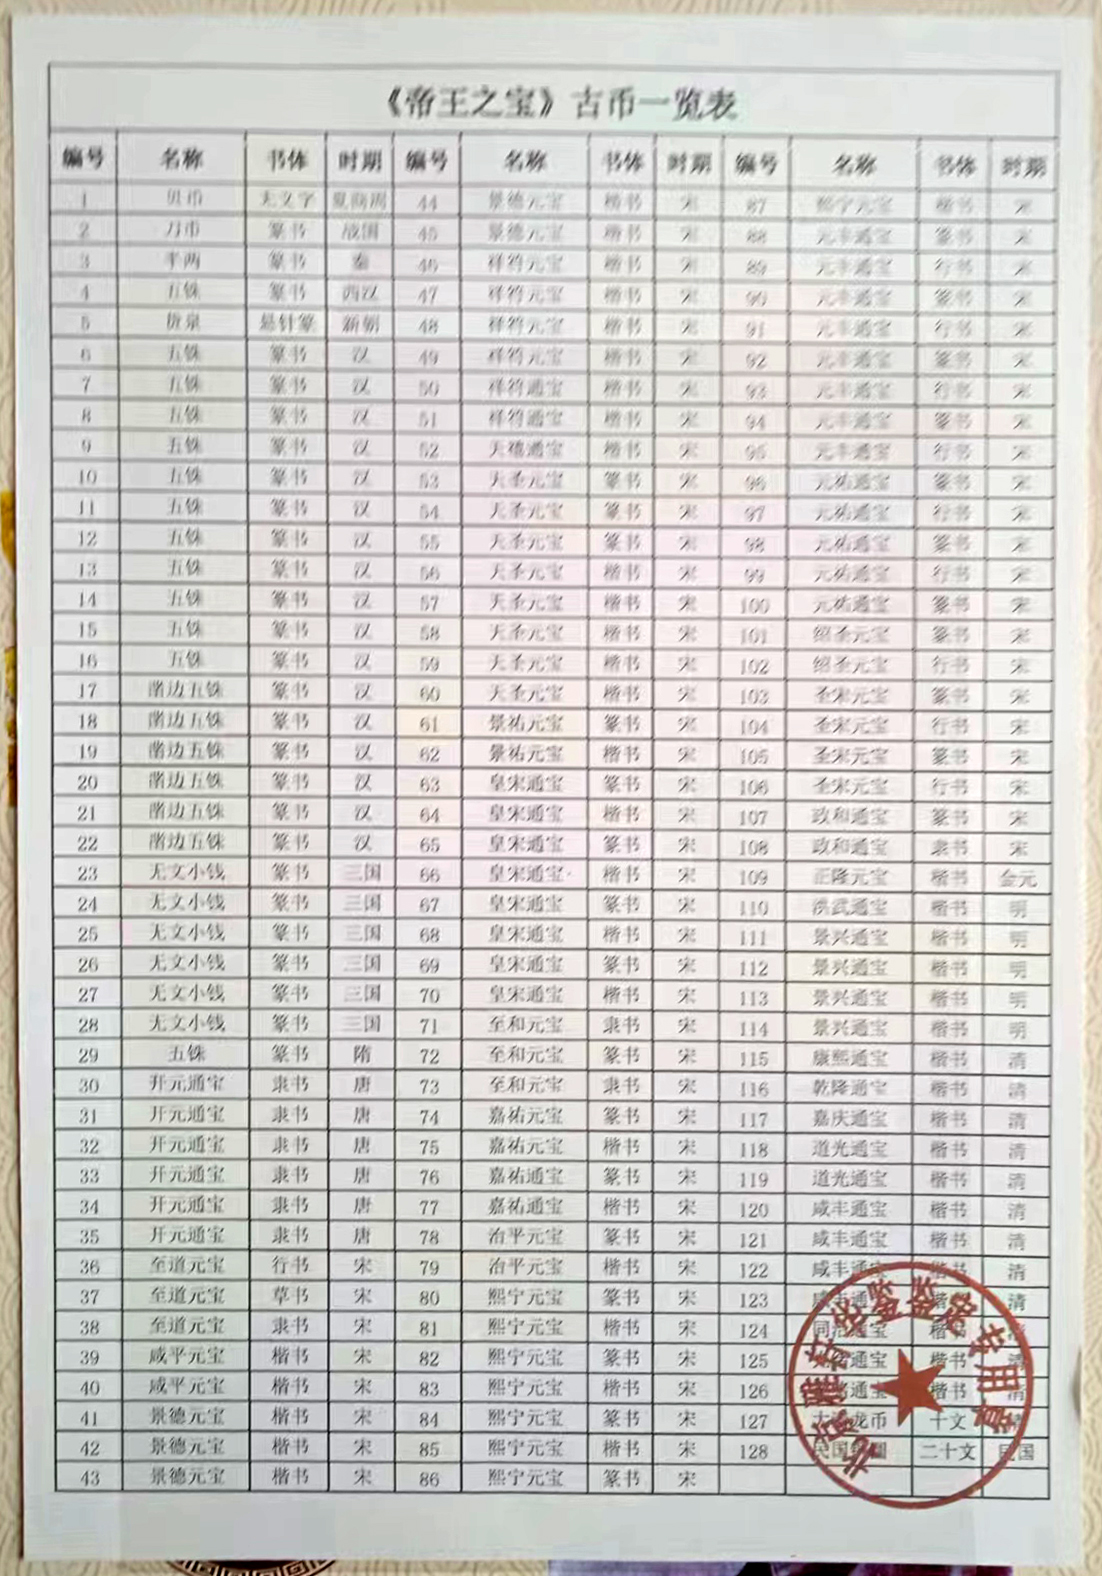 《帝王之宝》古币一览表
编号 名称 书体 时期 编号 名称 书体 时期 编号 名称 书体 时期
1 贝币 无文字 夏商周 44 景德元宝 楷书 宋 87 熙宁元宝 楷书 宋
2 刀币 篆书 战国 45 景德元宝 楷书 宋 88 元丰通宝 篆书 宋
3 半两 篆书 秦 46 祥符元宝 楷书 宋 89 元丰通宝 行书 宋
4 五铢 篆书 西汉 47 祥符元宝 楷书 宋 90 元丰通宝 篆书 宋
5 货泉 悬针篆 新朝 48 祥符元宝 楷书 宋 91 元丰通宝 行书 宋
6 五铢 篆书 汉 49 祥符元宝 楷书 宋 92 元丰通宝 篆书 宋
7 五铢 篆书 汉 50 祥符通宝 楷书 宋 93 元丰通宝 行书 宋
8 五铢 篆书 汉 51 祥符通宝 楷书 宋 94 元丰通宝 篆书 宋
9 五铢 篆书 汉 52 天禧通宝 楷书 宋 95 元丰通宝 行书 宋
10 五铢 篆书 汉 53 天圣元宝 篆书 宋 96 元祐通宝 篆书 宋
11 五铢 篆书 汉 54 天圣元宝 篆书 宋 97 元祐通宝 行书 宋
12 五铢 篆书 汉 55 天圣元宝 篆书 宋 98 元祐通宝 篆书 宋
13 五铢 篆书 汉 56 天圣元宝 楷书 宋 99 元祐通宝 行书 宋
14 五铢 篆书 汉 57 天圣元宝 楷书 宋 100 元祐通宝 篆书 宋
15 五铢 篆书 汉 58 天圣元宝 楷书 宋 101 绍圣元宝 篆书 宋
16 五铢 篆书 汉 59 天圣元宝 楷书 宋 102 绍圣元宝 行书 宋
17 凿边五铢 篆书 汉 60 天圣元宝 楷书 宋 103 圣宋元宝 篆书 宋
18 凿边五铢 篆书 汉 61 景祐元宝 篆书 宋 104 圣宋元宝 行书 宋
19 凿边五铢 篆书 汉 62 景祐元宝 楷书 宋 105 圣宋元宝 篆书 宋
20 凿边五铢 篆书 汉 63 皇宋通宝 篆书 宋 106 圣宋元宝 行书 宋
21 凿边五铢 篆书 汉 64 皇宋通宝 楷书 宋 107 政和通宝 篆书 宋
22 凿边五铢 篆书 汉 65 皇宋通宝 篆书 宋 108 政和通宝 隶书 宋
23 无文小钱 篆书 三国 66 皇宋通宝 楷书 宋 109 正隆元宝 楷书 金元
24 无文小钱 篆书 三国 67 皇宋通宝 篆书 宋 110 洪武通宝 楷书 明
25 无文小钱 篆书 三国 68 皇宋通宝 楷书 宋 111 景兴通宝 楷书 明
26 无文小钱 篆书 三国 69 皇宋通宝 篆书 宋 112 景兴通宝 楷书 明
27 无文小钱 篆书 三国 70 皇宋通宝 楷书 宋 113 景兴通宝 楷书 明
28 无文小钱 篆书 三国 71 至和元宝 隶书 宋 114 景兴通宝 楷书 明
29 五铢 篆书 隋 72 至和元宝 篆书 宋 115 康熙通宝 楷书 清
30 开元通宝 隶书 唐 73 至和元宝 隶书 宋 116 乾隆通宝 楷书 清
31 开元通宝 隶书 唐 74 嘉祐元宝 篆书 宋 117 嘉庆通宝 楷书 清
32 开元通宝 隶书 唐 75 嘉祐元宝 楷书 宋 118 道光通宝 楷书 清
33 开元通宝 隶书 唐 76 嘉祐通宝 篆书 宋 119 道光通宝 楷书 清
34 开元通宝 隶书 唐 77 嘉祐通宝 楷书 宋 120 咸丰通宝 楷书 清
35 开元通宝 隶书 唐 78 治平元宝 篆书 宋 121 咸丰通宝 楷书 清
36 至道元宝 行书 宋 79 治平元宝 楷书 宋 122 咸丰通宝 楷书 清
37 至道元宝 草书 宋 80 熙宁元宝 篆书 宋 123 咸丰通宝 楷书 清
38 至道元宝 隶书 宋 81 熙宁元宝 楷书 宋 124 同治通宝 楷书 清
39 咸平元宝 楷书 宋 82 熙宁元宝 篆书 宋 125 同治通宝 楷书 清
40 咸平元宝 楷书 宋 83 熙宁元宝 楷书 宋 126 通宝 楷书 清
41 景德元宝 楷书 宋 84 熙宁元宝 篆书 宋 127 大清龙币 十文 清
42 景德元宝 楷书 宋 85 熙宁元宝 楷书 宋 128 民国铜圆 二十文 民国
43 景德元宝 楷书 宋 86 熙宁元宝 篆书 宋
专用章